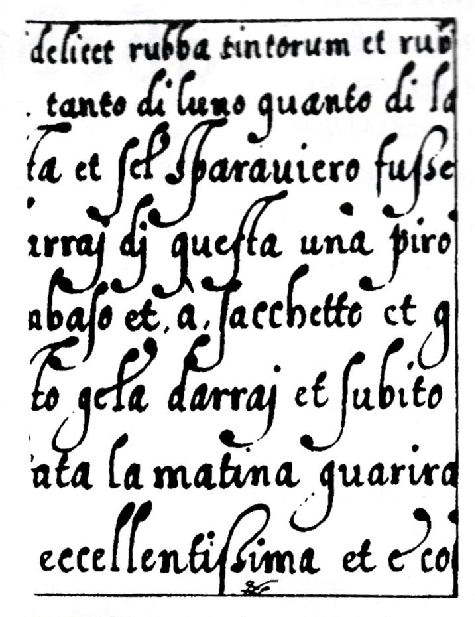 delicet rubba tintorum et rub
. tanto di luno quanto di la
ta et sel sparauiero fusse
arraj dj questa una piro
abaso et, à, sacchetto et q
to gela darraj et subito
ata la matina guarira
eccellentissima et e co